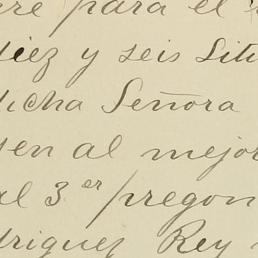 re para el
diez y seis Situ
dicha Señora
sen al mejor
al 3er pregon
driguez Rey